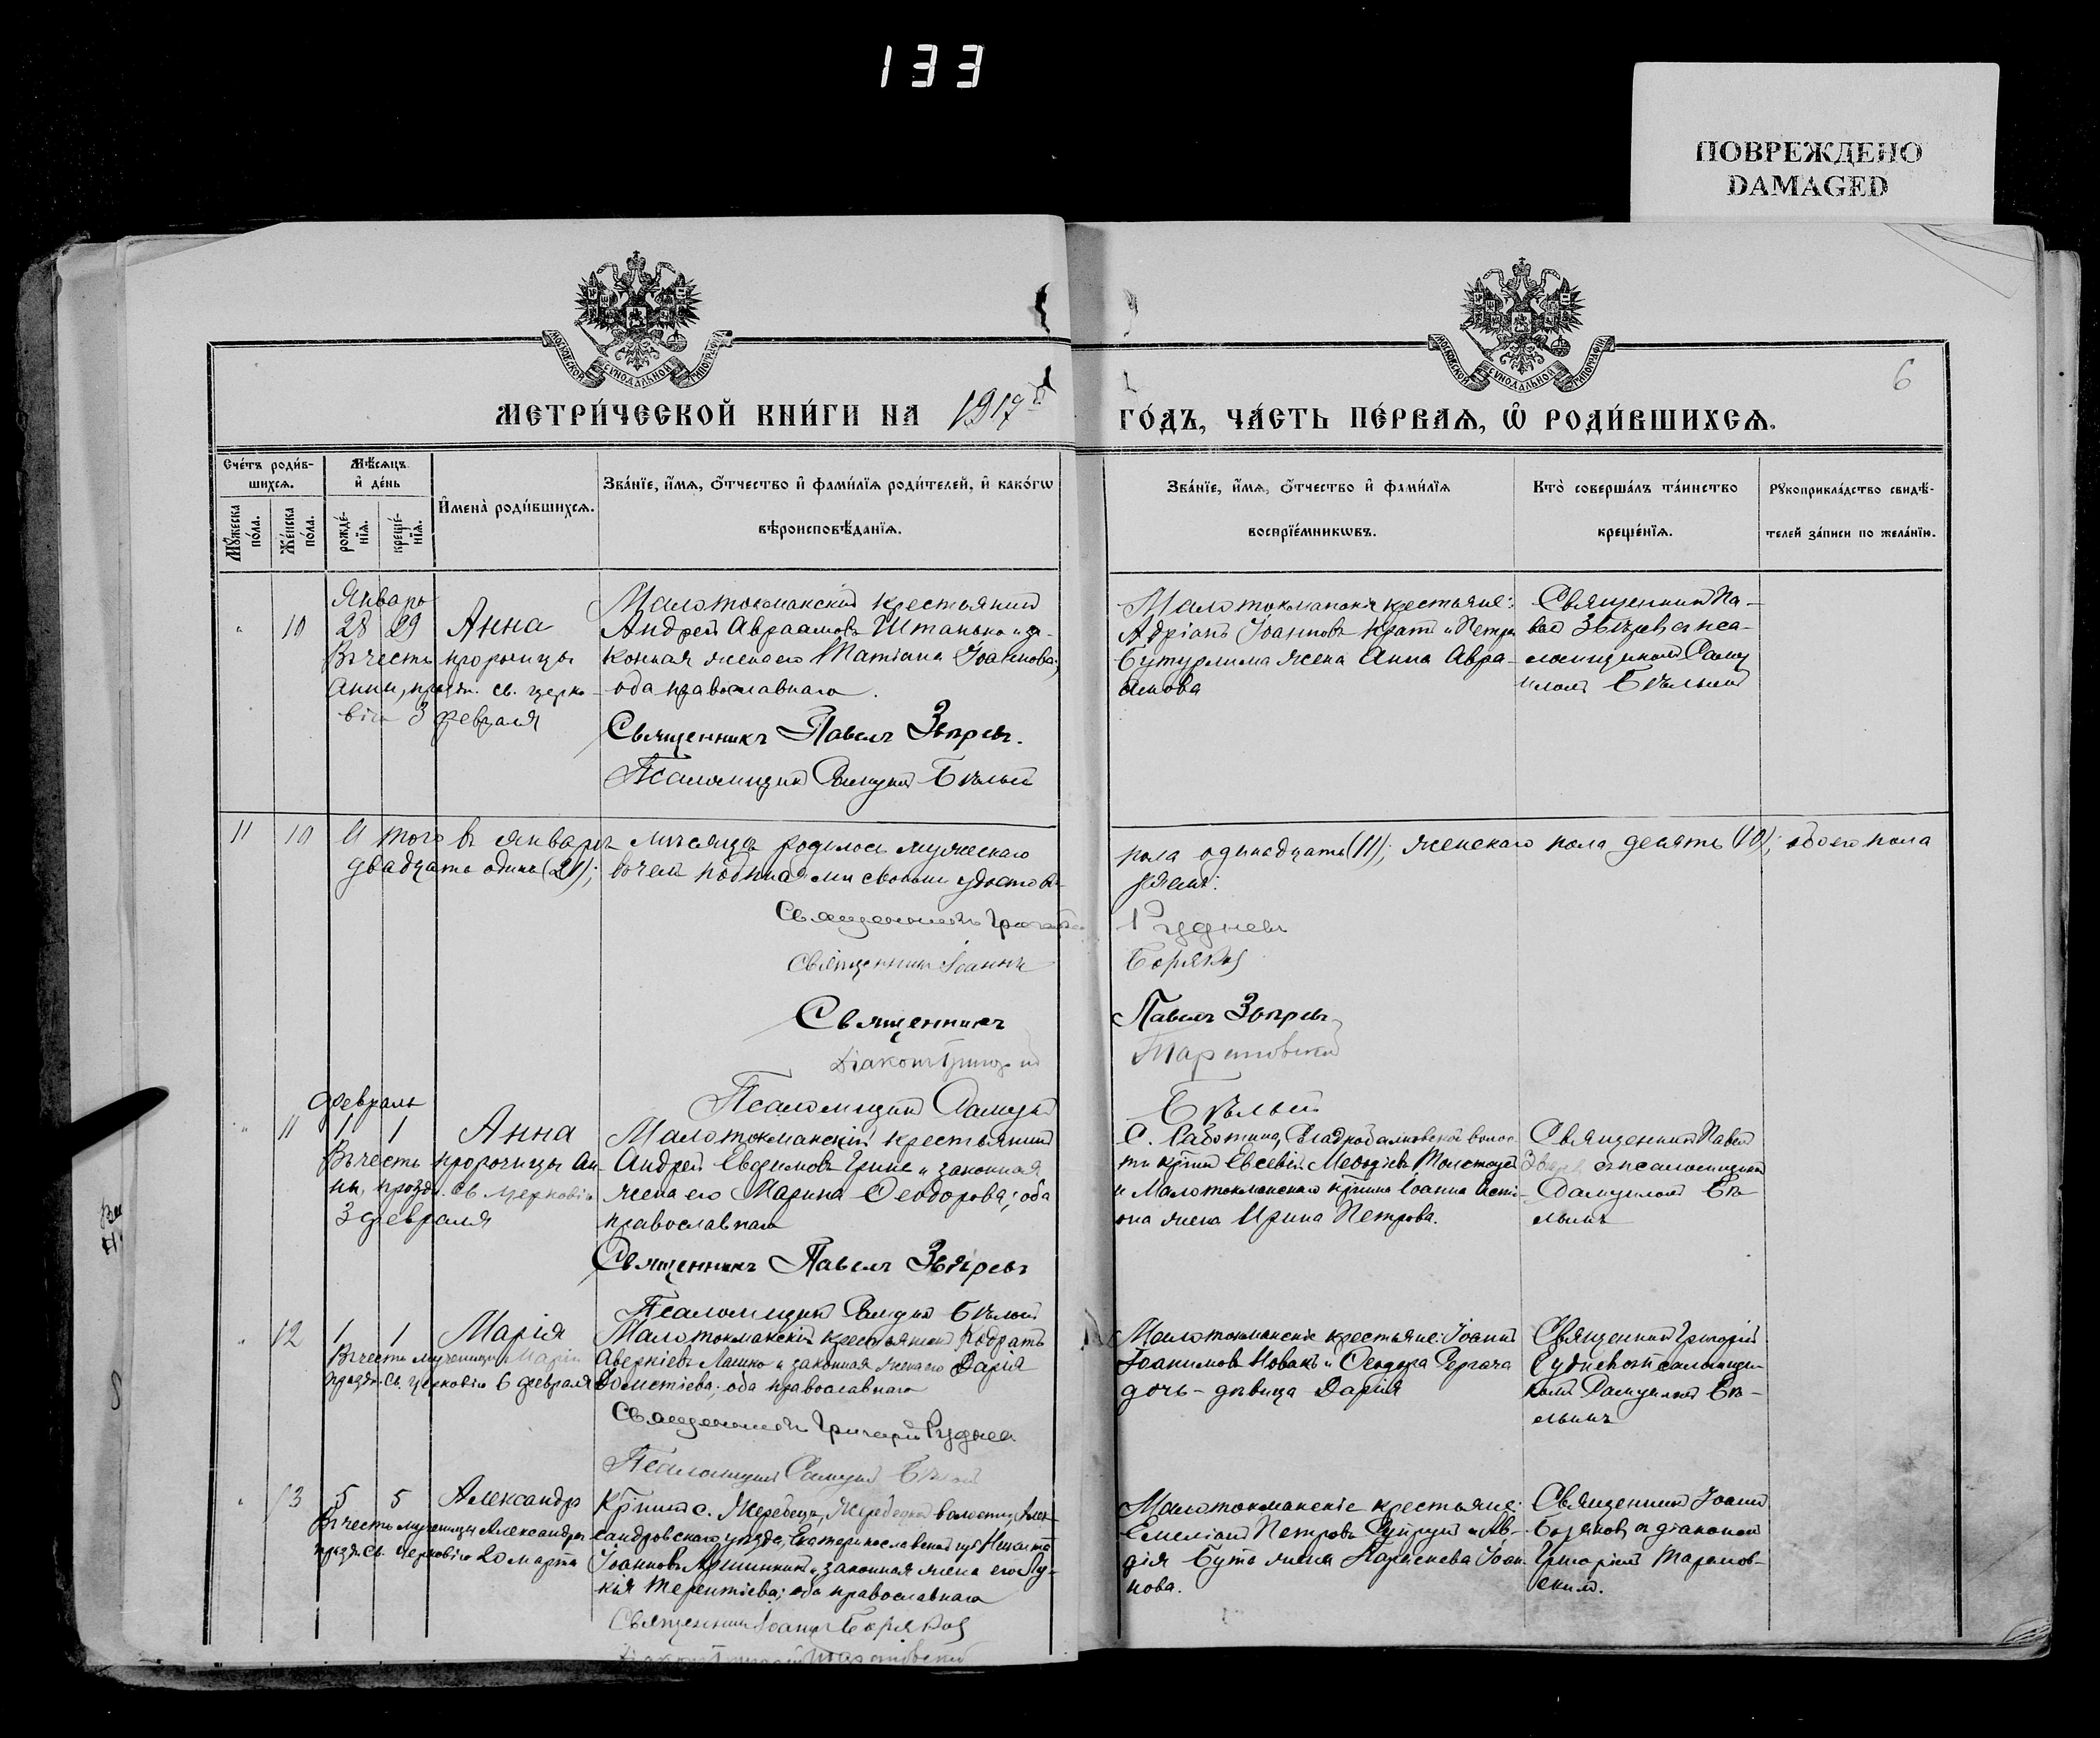 133
ПОВРЕЖДЕНО
DAMAGED
МОСКОВСКОЙ СѴНОДАЛЬНОЙ ТИПОГРАФІИ
МОСКОВСКОЙ СѴНОДАЛЬНОЙ ТИПОГРАФІИ
6
МЕТРИ́ЧЕСКОЙ КНИ́ГИ НА 1917й
ГО́ДЪ, ЧА́СТЬ ПЕ́РВАѦ, Ѽ РОДИ́ВШИХСѦ.
Сче́тъ роди́в-
шихсѧ.
Мѣ́сѧцъ
и҆ де́нь
И҆мена̀ роди́вшихсѧ.
Зва́нїе, и҆́мѧ, ѻ҆́тчество и҆ фами́лїѧ роди́телей, и҆ како́гѡ
вѣроисповѣ́данїѧ.
Мꙋ́жеска по́ла.
Же́нска по́ла.
рожде́-
нїѧ.
креще́-
нїѧ.
Зва́нїе, и҆́мѧ, ѻ҆́тчество и҆ фами́лїѧ
воспрїе́мникѡвъ.
Кто̀ соверша́лъ та́инство
креще́нїѧ.
Рꙋкоприкла́дство свидѣ́-
телей за́писи по жела́нїю.
Январь
" 10 28 29 Анна
Въ честь пророчицы
Анны, празд. св. церко-
вію 3 февраля
Малотокмакскій крестьянинъ
Андрей Авраамовъ Штанько и за-
конная жена его Татіана Іоаннова;
оба православнаго.
Священникъ Павелъ Звѣревъ.
Псаломщикъ Самуилъ Бѣлый
Малотокмакскіе крестьяне:
Адріанъ Іоанновъ Кратъ и Петра
Бутурлима жена Анна Авра-
амова
Священникъ Па-
велъ Звѣревъ съ пса-
ломщикомъ Саму
иломъ Бѣлымъ
11 10 Итого въ январѣ мѣсяцѣ родилось мужескаго
двадцать одинъ (21); въ чемъ подписами своими удостовѣ-
пола одинадцать (11); женскаго пола десять (10); обоего пола
ряемъ:
Священникъ Григорій
Рудневъ
Священникъ Іоаннъ
Боряковъ
Священникъ
Павелъ Звѣревъ
Діаконъ Григорій
Тарановскій
Псаломщикъ Самуилъ
Бѣлый
Февраль
" 11 1 1 Анна
Въ честь пророчицы Ан-
ны, празд. св. церковію
3 февраля
Малотокмакскій крестьянинъ
Андрей Евфимовъ Гринь и законная
жена его Марина Ѳеодорова; оба
православнаго
Священникъ Павелъ Звѣревъ
Псаломщикъ Самуилъ Бѣлый
ти кр̃нинъ Евсевій Меѳодіевъ
и Малотокмакскаго кр̃нина Іоанна
она жена Ирина Петрова.
Священникъ Павелъ
Звѣревъ съ псаломщикомъ
Самуиломъ Бѣ-
лымъ
" 12 1 1 Марія
Въ честь мученицы Маріи
празд. св. церковію 6 февраля
Малотокмакскій крестьянинъ Кодратъ
Аверкіевъ Ляшко и законная жена его Дарія
Дометіева; оба православнаго
Священникъ Григорій Рудневъ
Псаломщикъ Самуилъ Бѣлый
Малотокмакскіе крестьяне: Іоаннъ
Іоакимовъ Новакъ и Ѳеодора Гергача
дочь - дѣвица Дарія
Священникъ Григорій
Рудневъ съ псаломщи-
комъ Самуиломъ Бѣ-
лымъ
" 13 5 5 Александра
Въ честь мученицы Александры
празд. св. церковію 20 марта
Кр̃нинъ с. Жеребецъ, Жеребецкой волости, Алек-
сандровскаго уѣзда, Екатеринославской губ.
Іоанновъ и законная жена его Лу-
кія Терентіева; оба православнаго
Священникъ Іоаннъ Боряковъ
Діаконъ Григорій Тарановскій
Малотокмакскіе крестьяне:
Емеліанъ Петровъ и Ав-
дія Бута жена Іоан-
нова.
Священникъ Іоаннъ
Боряковъ съ діакономъ
Григоріемъ Таранов-
скимъ.